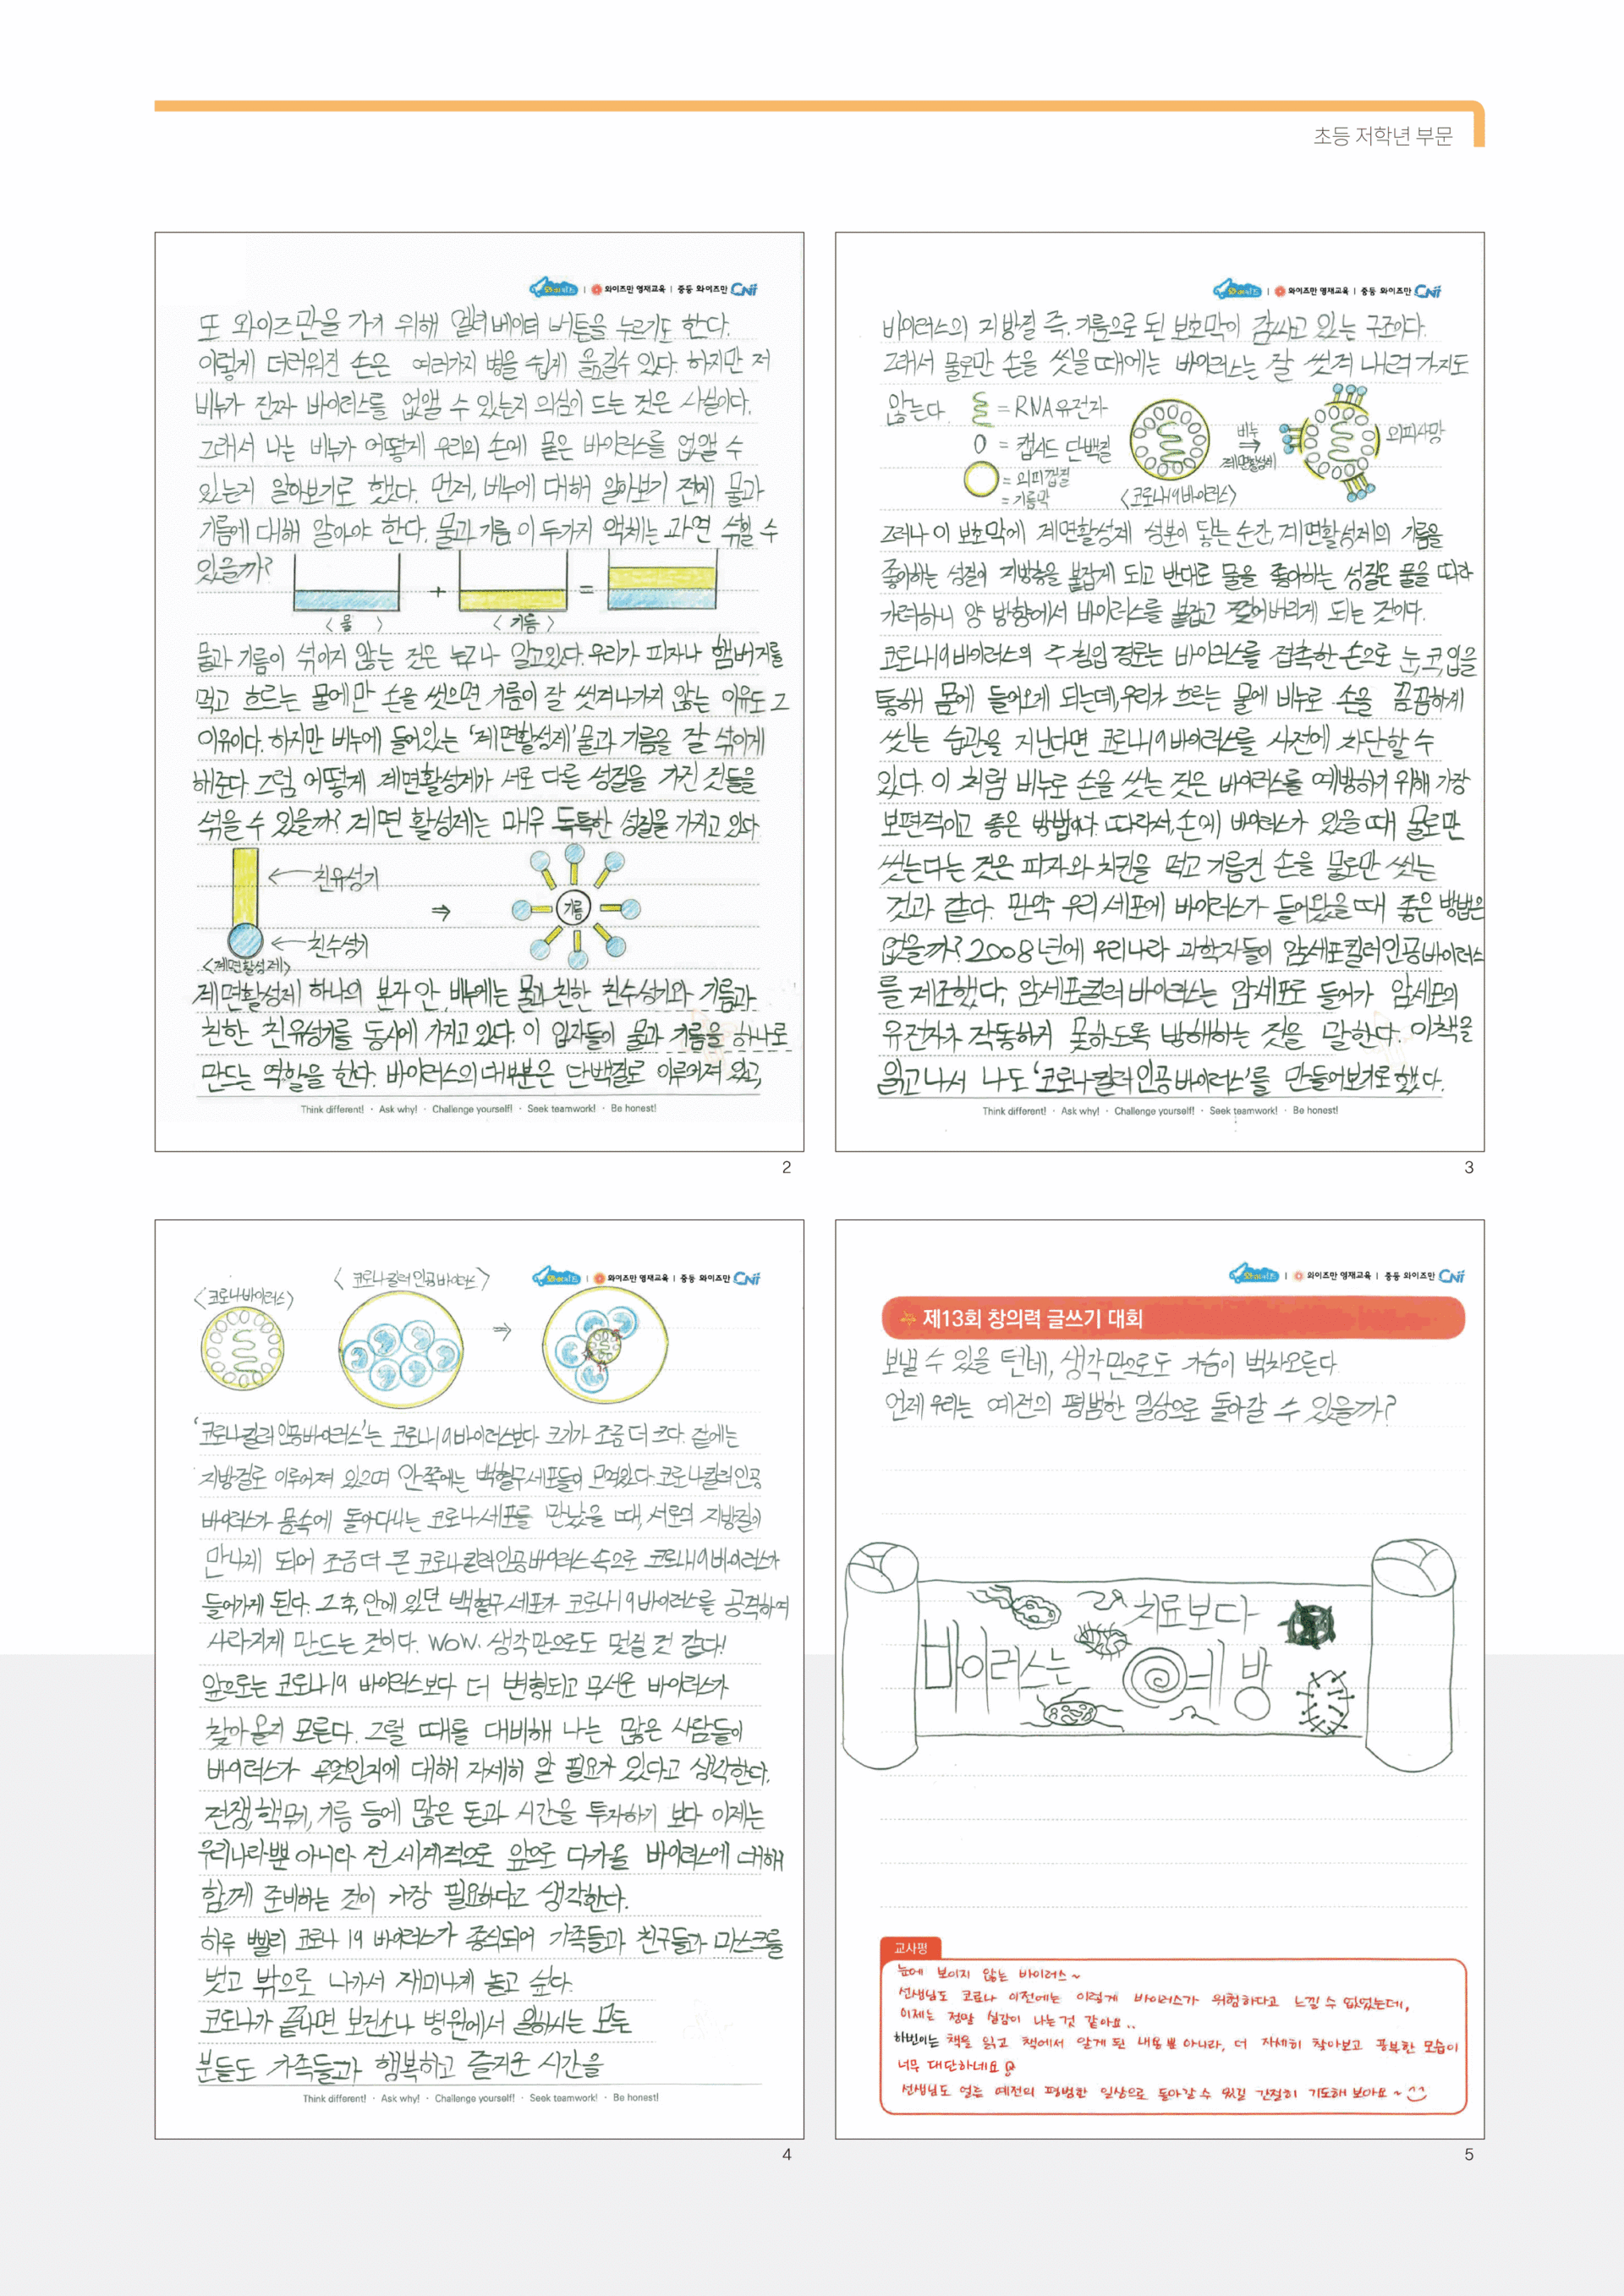 초등 저학년 부문
와이즈만 영재교육 | 중등 와이즈만 CNI
또 와이즈만을 가기 위해 엘리베이터 버튼을 누르기도 한다.
이렇게 더러워진 손은 여러가지 병을 쉽게 옮길수 있다. 하지만 저
비누가 진짜 바이러스를 없앨 수 있는지 의심이 드는 것은 사실이다.
그래서 나는 비누가 어떻게 우리의 손에 묻은 바이러스를 없앨 수
있는지 알아보기로 했다. 먼저, 비누에 대해 알아보기 전에 물과
기름에 대해 알아야 한다. 물과 기름 이 두가지 액체는 과연 섞일 수
있을까?
+ =
<물> <기름>
물과 기름이 섞이지 않는 것은 누구나 알고있다. 우리가 피자나 햄버거를
먹고 흐르는 물에만 손을 씻으면 기름이 잘 씻겨나가지 않는 이유도 그
이유이다. 하지만 비누에 들어있는 '계면활성제' 물과 기름을 잘 섞이게
해준다. 그럼 어떻게 계면활성제가 서로 다른 성질을 가진 것들을
섞을 수 있을까? 계면 활성제는 매우 독특한 성질을 가지고 있다.
친유성기
⇒ 기름
친수성기
<계면활성제>
계면활성제 하나의 분자 안, 비누에는 물과 친한 친수성기와 기름과
친한 친유성기를 동시에 가지고 있다. 이 입자들이 물과 기름을 하나로
만드는 역할을 한다. 바이러스의 대부분은 단백질로 이루어져 있고,
Think different! · Ask why! · Challenge yourself! · Seek teamwork! · Be honest!
2
와이즈만 영재교육 | 중등 와이즈만 CNI
바이러스의 지방질 즉, 기름으로 된 보호막이 감싸고 있는 구조이다.
그래서 물로만 손을 씻을 때에는 바이러스는 잘 씻겨 내려 가지도
않는다.
= RNA유전자
= 캡시드 단백질
= 외피껍질
= 기름막
<코로나19바이러스>
비누
⇒
계면활성제
외피사망
그러나 이 보호막에 계면활성제 성분이 닿는 순간, 계면활성제의 기름을
좋아하는 성질이 지방층을 붙잡게 되고 반대로 물을 좋아하는 성질은 물을 따라
가려하니 양 방향에서 바이러스를 붙잡고 찢어버리게 되는 것이다.
코로나19바이러스의 주 침입 경로는 바이러스를 접촉한 손으로 눈,코,입을
통해 몸에 들어오게 되는데, 우리가 흐르는 물에 비누로 손을 꼼꼼하게
씻는 습관을 지닌다면 코로나19바이러스를 사전에 차단할 수
있다. 이 처럼 비누로 손을 씻는 것은 바이러스를 예방하기 위해 가장
보편적이고 좋은 방법이다. 따라서, 손에 바이러스가 있을 때 물로만
씻는다는 것은 피자와 치킨을 먹고 기름진 손을 물로만 씻는
것과 같다. 만약 우리 세포에 바이러스가 들어왔을 때 좋은 방법은
없을까? 2008년에 우리나라 과학자들이 암세포킬러인공바이러스
를 제조했다. 암세포킬러바이러스는 암세포로 들어가 암세포의
유전자가 작동하지 못하도록 방해하는 것을 말한다. 이책을
읽고나서 나도 '코로나킬러인공바이러스'를 만들어보기로 했다.
Think different! · Ask why! · Challenge yourself! · Seek teamwork! · Be honest!
3
와이즈만 영재교육 | 중등 와이즈만 CNI
<코로나바이러스>
<코로나킬러인공바이러스>
⇒
'코로나킬러인공바이러스'는 코로나19바이러스보다 크기가 조금 더 크다. 겉에는
지방질로 이루어져 있으며 안쪽에는 백혈구세포들이 모여있다. 코로나킬러인공
바이러스가 몸속에 돌아다니는 코로나세포를 만났을 때, 서로의 지방질이
만나게 되어 조금 더 큰 코로나킬러인공바이러스 속으로 코로나19바이러스가
들어가게 된다. 그 후, 안에 있던 백혈구 세포가 코로나19바이러스를 공격하여
사라지게 만드는 것이다. WOW. 생각만으로도 멋질 것 같다!
앞으로는 코로나19 바이러스보다 더 변형되고 무서운 바이러스가
찾아올지 모른다. 그럴 때를 대비해 나는 많은 사람들이
바이러스가 무엇인지에 대해 자세히 알 필요가 있다고 생각한다.
전쟁, 핵무기, 기름 등에 많은 돈과 시간을 투자하기 보다 이제는
우리나라뿐 아니라 전 세계적으로 앞으로 다가올 바이러스에 대해
함께 준비하는 것이 가장 필요하다고 생각한다.
하루 빨리 코로나 19 바이러스가 종식되어 가족들과 친구들과 마스크를
벗고 밖으로 나가서 재미나게 놀고 싶다.
코로나가 끝나면 보건소나 병원에서 일하시는 모두
분들도 가족들과 행복하고 즐거운 시간을
Think different! · Ask why! · Challenge yourself! · Seek teamwork! · Be honest!
4
와이즈만 영재교육 | 중등 와이즈만 CNI
제13회 창의력 글쓰기 대회
보낼 수 있을 텐데, 생각만으로도 가슴이 벅차오른다.
언제 우리는 예전의 평범한 일상으로 돌아갈 수 있을까?
치료보다
바이러스는 예방
교사평
눈에 보이지 않는 바이러스~
선생님도 코로나 이전에는 이렇게 바이러스가 위험하다고 느낄 수 없었는데,
이제는 정말 실감이 나는 것 같아요..
하빈이는 책을 읽고 책에서 알게 된 내용 뿐 아니라, 더 자세히 찾아보고 공부한 모습이
너무 대단하네요
선생님도 얼른 예전의 평범한 일상으로 돌아갈 수 있길 간절히 기도해 보아요~
5